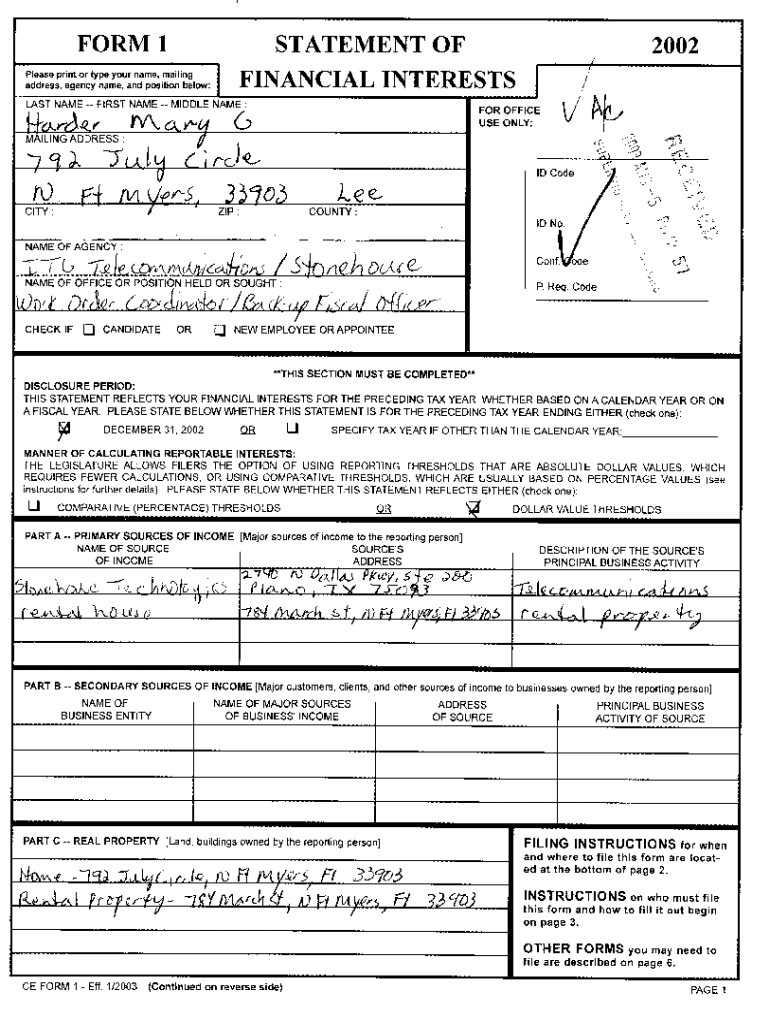 FORM 1 STATEMENT OF 2002
Please print or type your name, mailing
address, agency name, and position below:
FINANCIAL INTERESTS
LAST NAME -- FIRST NAME -- MIDDLE NAME :
Harder Mary G
MAILING ADDRESS :
792 July Circle
N Ft Myers, 33903 Lee
CITY : ZIP : COUNTY :
NAME OF AGENCY :
ITG Telecommunications / Stonehouse
NAME OF OFFICE OR POSITION HELD OR SOUGHT :
Work Order Coordinator / Back-up Fiscal Officer
CHECK IF CANDIDATE OR NEW EMPLOYEE OR APPOINTEE
FOR OFFICE
USE ONLY:
RECEIVED
ID Code
ID No.
Conf. Code
P. Req. Code
**THIS SECTION MUST BE COMPLETED**
DISCLOSURE PERIOD:
THIS STATEMENT REFLECTS YOUR FINANCIAL INTERESTS FOR THE PRECEDING TAX YEAR, WHETHER BASED ON A CALENDAR YEAR OR ON
A FISCAL YEAR. PLEASE STATE BELOW WHETHER THIS STATEMENT IS FOR THE PRECEDING TAX YEAR ENDING EITHER (check one):
DECEMBER 31, 2002 OR SPECIFY TAX YEAR IF OTHER THAN THE CALENDAR YEAR:
MANNER OF CALCULATING REPORTABLE INTERESTS:
THE LEGISLATURE ALLOWS FILERS THE OPTION OF USING REPORTING THRESHOLDS THAT ARE ABSOLUTE DOLLAR VALUES, WHICH
REQUIRES FEWER CALCULATIONS, OR USING COMPARATIVE THRESHOLDS, WHICH ARE USUALLY BASED ON PERCENTAGE VALUES (see
instructions for further details). PLEASE STATE BELOW WHETHER THIS STATEMENT REFLECTS EITHER (check one):
COMPARATIVE (PERCENTAGE) THRESHOLDS OR DOLLAR VALUE THRESHOLDS
PART A -- PRIMARY SOURCES OF INCOME [Major sources of income to the reporting person]
NAME OF SOURCE SOURCE'S DESCRIPTION OF THE SOURCE'S
OF INCOME ADDRESS PRINCIPAL BUSINESS ACTIVITY
2740 N Dallas Pkwy, Ste 200
Stonehouse Technologies Plano, TX 75093 Telecommunications
rental house 784 March st, N Ft Myers, Fl 33903 rental property
PART B -- SECONDARY SOURCES OF INCOME [Major customers, clients, and other sources of income to businesses owned by the reporting person]
NAME OF NAME OF MAJOR SOURCES ADDRESS PRINCIPAL BUSINESS
BUSINESS ENTITY OF BUSINESS' INCOME OF SOURCE ACTIVITY OF SOURCE
PART C -- REAL PROPERTY [Land, buildings owned by the reporting person]
Home - 792 July Circle, N Ft Myers, Fl 33903
Rental Property - 784 March St, N Ft Myers, Fl 33903
FILING INSTRUCTIONS for when
and where to file this form are locat-
ed at the bottom of page 2.
INSTRUCTIONS on who must file
this form and how to fill it out begin
on page 3.
OTHER FORMS you may need to
file are described on page 6.
CE FORM 1 - Eff. 1/2003 (Continued on reverse side) PAGE 1